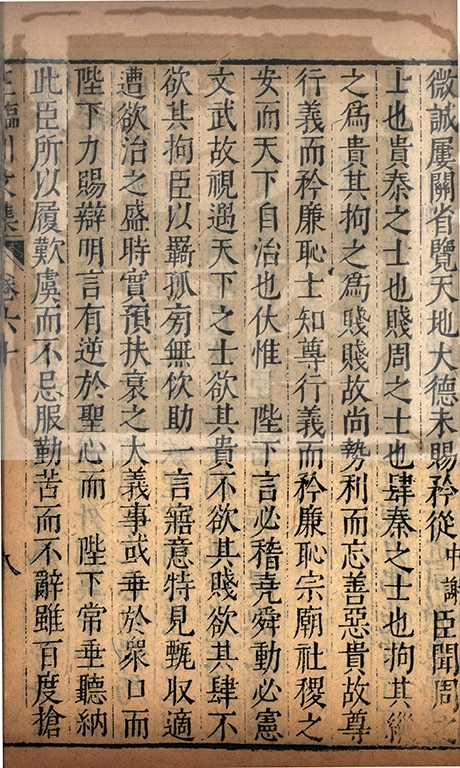 微誠屢關省覽天地大德未賜矜從中謝臣聞周之
士也貴秦之士也賤周之士也肆秦之士也拘其
之為貴其拘之為賤賤故尚勢利而忘善惡貴故尊
行義而矜廉恥士知尊行義而矜廉恥宗廟社稷之
安而天下自治也伏惟 陛下言必稽堯舜動必憲
文武故視遇天下之士欲其貴不欲其賤欲其肆不
欲其拘臣以羇孤旁無佽助一言寤意特見甄收適
遭欲治之盛時實預扶衰之大義事或乖於衆口而
陛下力賜辯明言有逆於聖心而 陛下常垂聽納
此臣所以履歎虞而不忌服勤苦而不辭雖百度搶
王臨川文集 卷六十 八